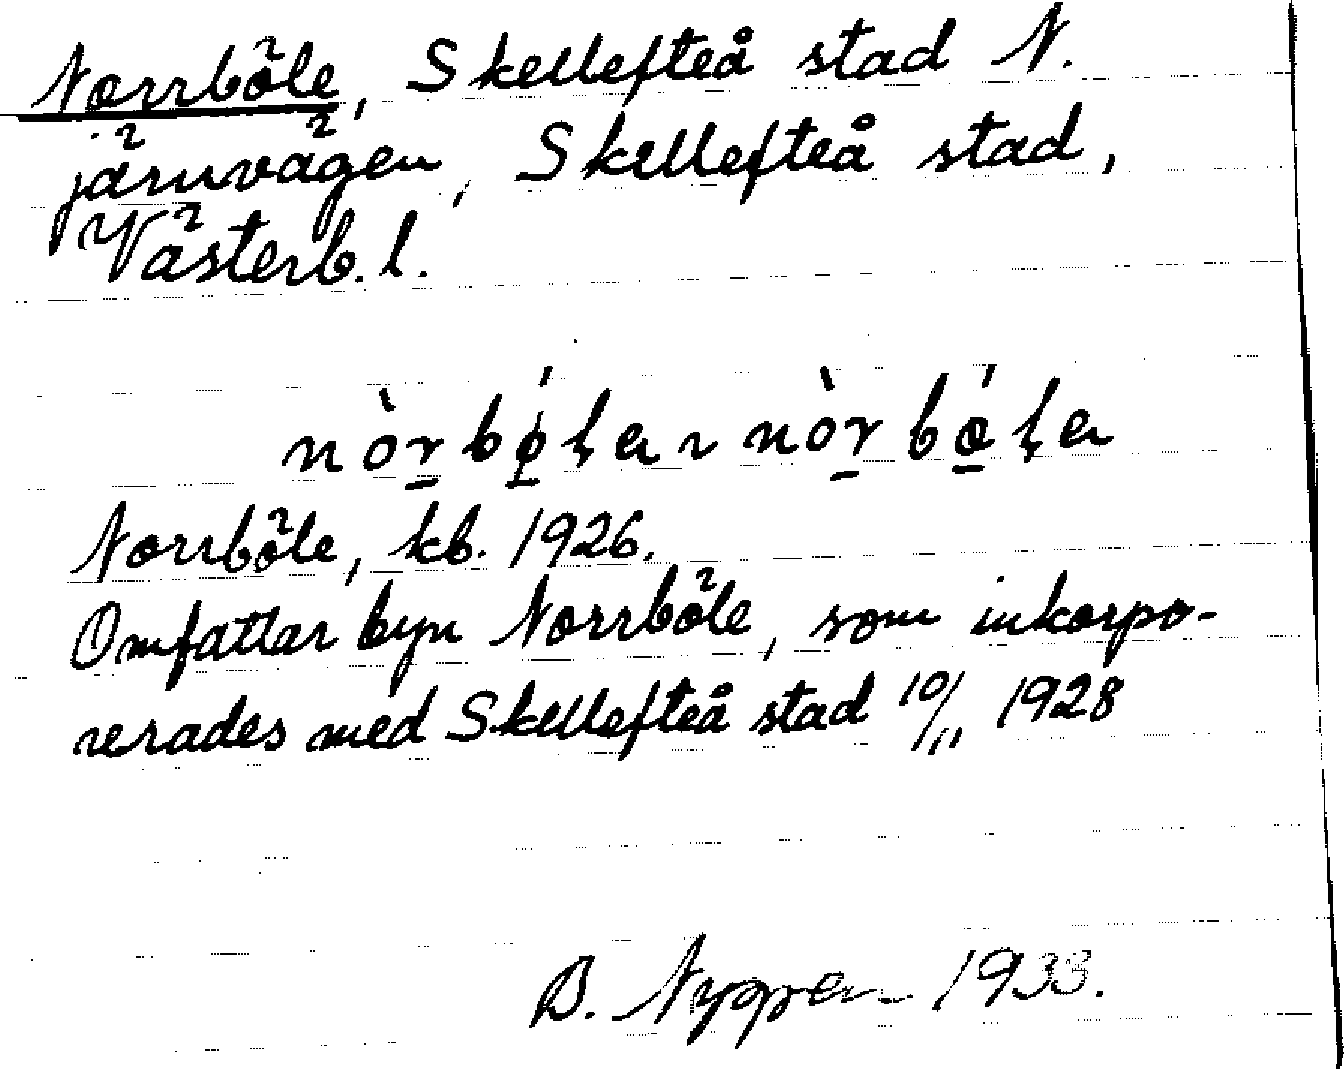 Norrböle, Skellefteå stad N.
järnvägen, Skellefteå stad,
Västerb. l.
nòrbǿ̣la ~ nòrbǿla
Norrböle, kb. 1926.
Omfattar byn Norrböle, som inkorpo-
rerades med Skellefteå stad 10/11 1928
B. 1933.